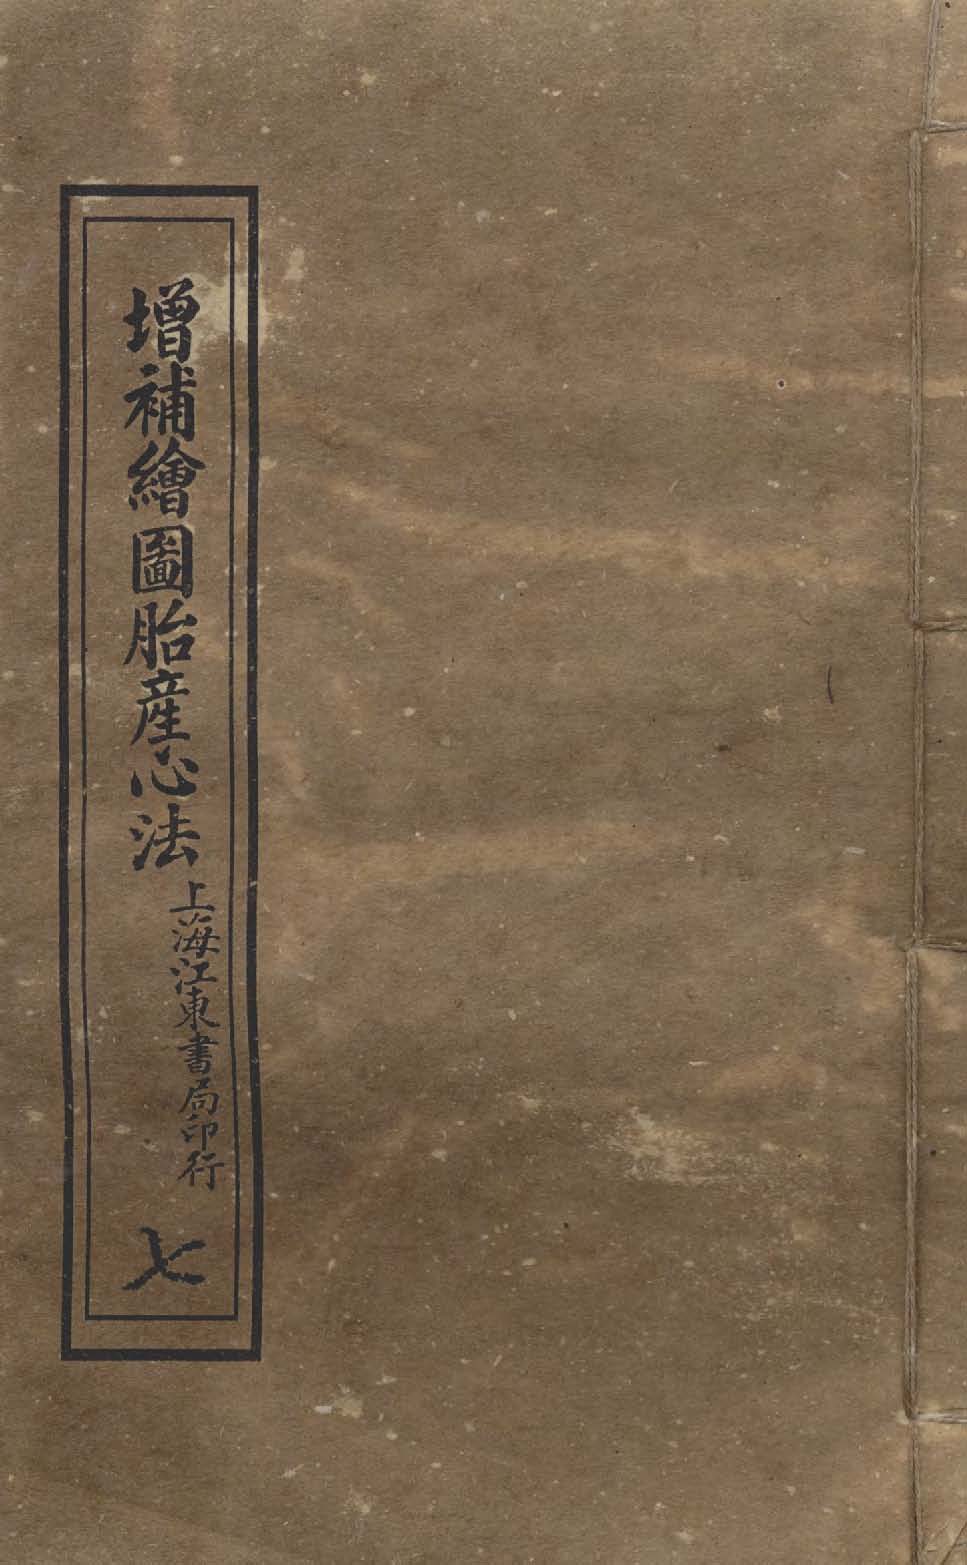 增補繪圖胎產心法
上海江東書局印行
七